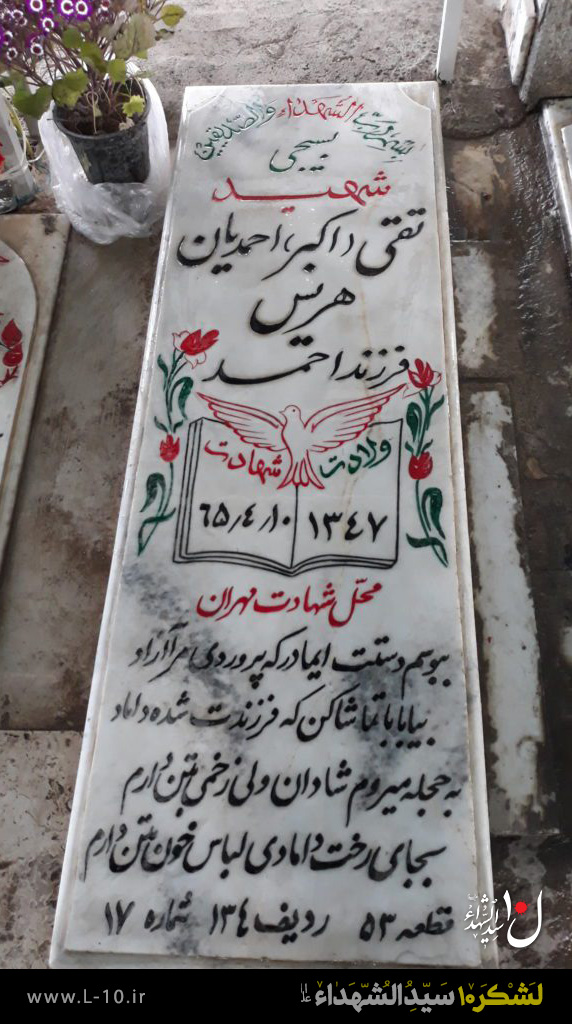 بسم رب الشهداء والصدیقین
بسیجی
شهید
تقی (اکبر) احمدیان
هریس
فرزند احمد
ولادت شهادت
۱۳۴۷ ۶۵٫۴٫۱۰
محل شهادت مهران
ببوسم دستت ایمادر که پروردی مرا آزاد
بیا بابا تماشا کن که فرزندت شده داماد
به حجله میروم شادان ولی زخمی بتن دارم
بجای رخت دامادی لباس خون بتن دارم
قطعه ۵۳ ردیف ۱۳۴ شماره ۱۷
ل۱۰ سیدالشهداء
www.L-10.ir لَشکَر۱۰ سَیِّدُالشُّهَداءِ